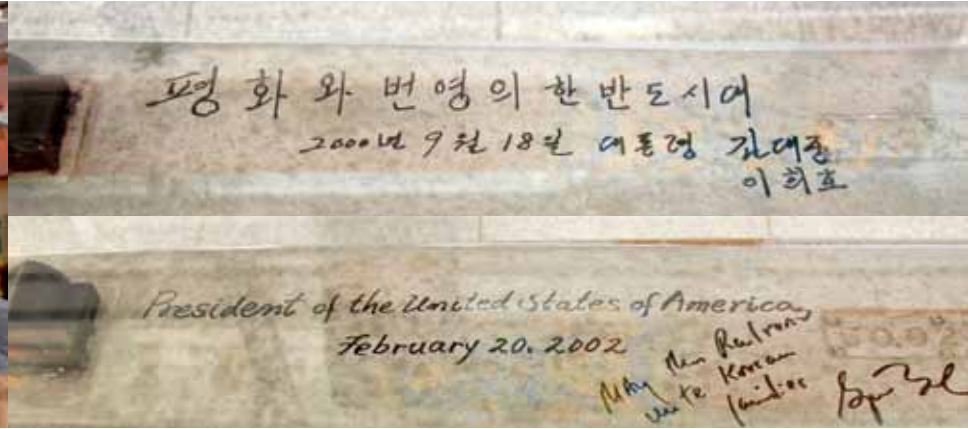 평화와 번영의 한반도시대
2000년 9월 18일 대통령 김대중
이희호
President of the United States of America
February 20. 2002
May This Railroad
unite Korean
families